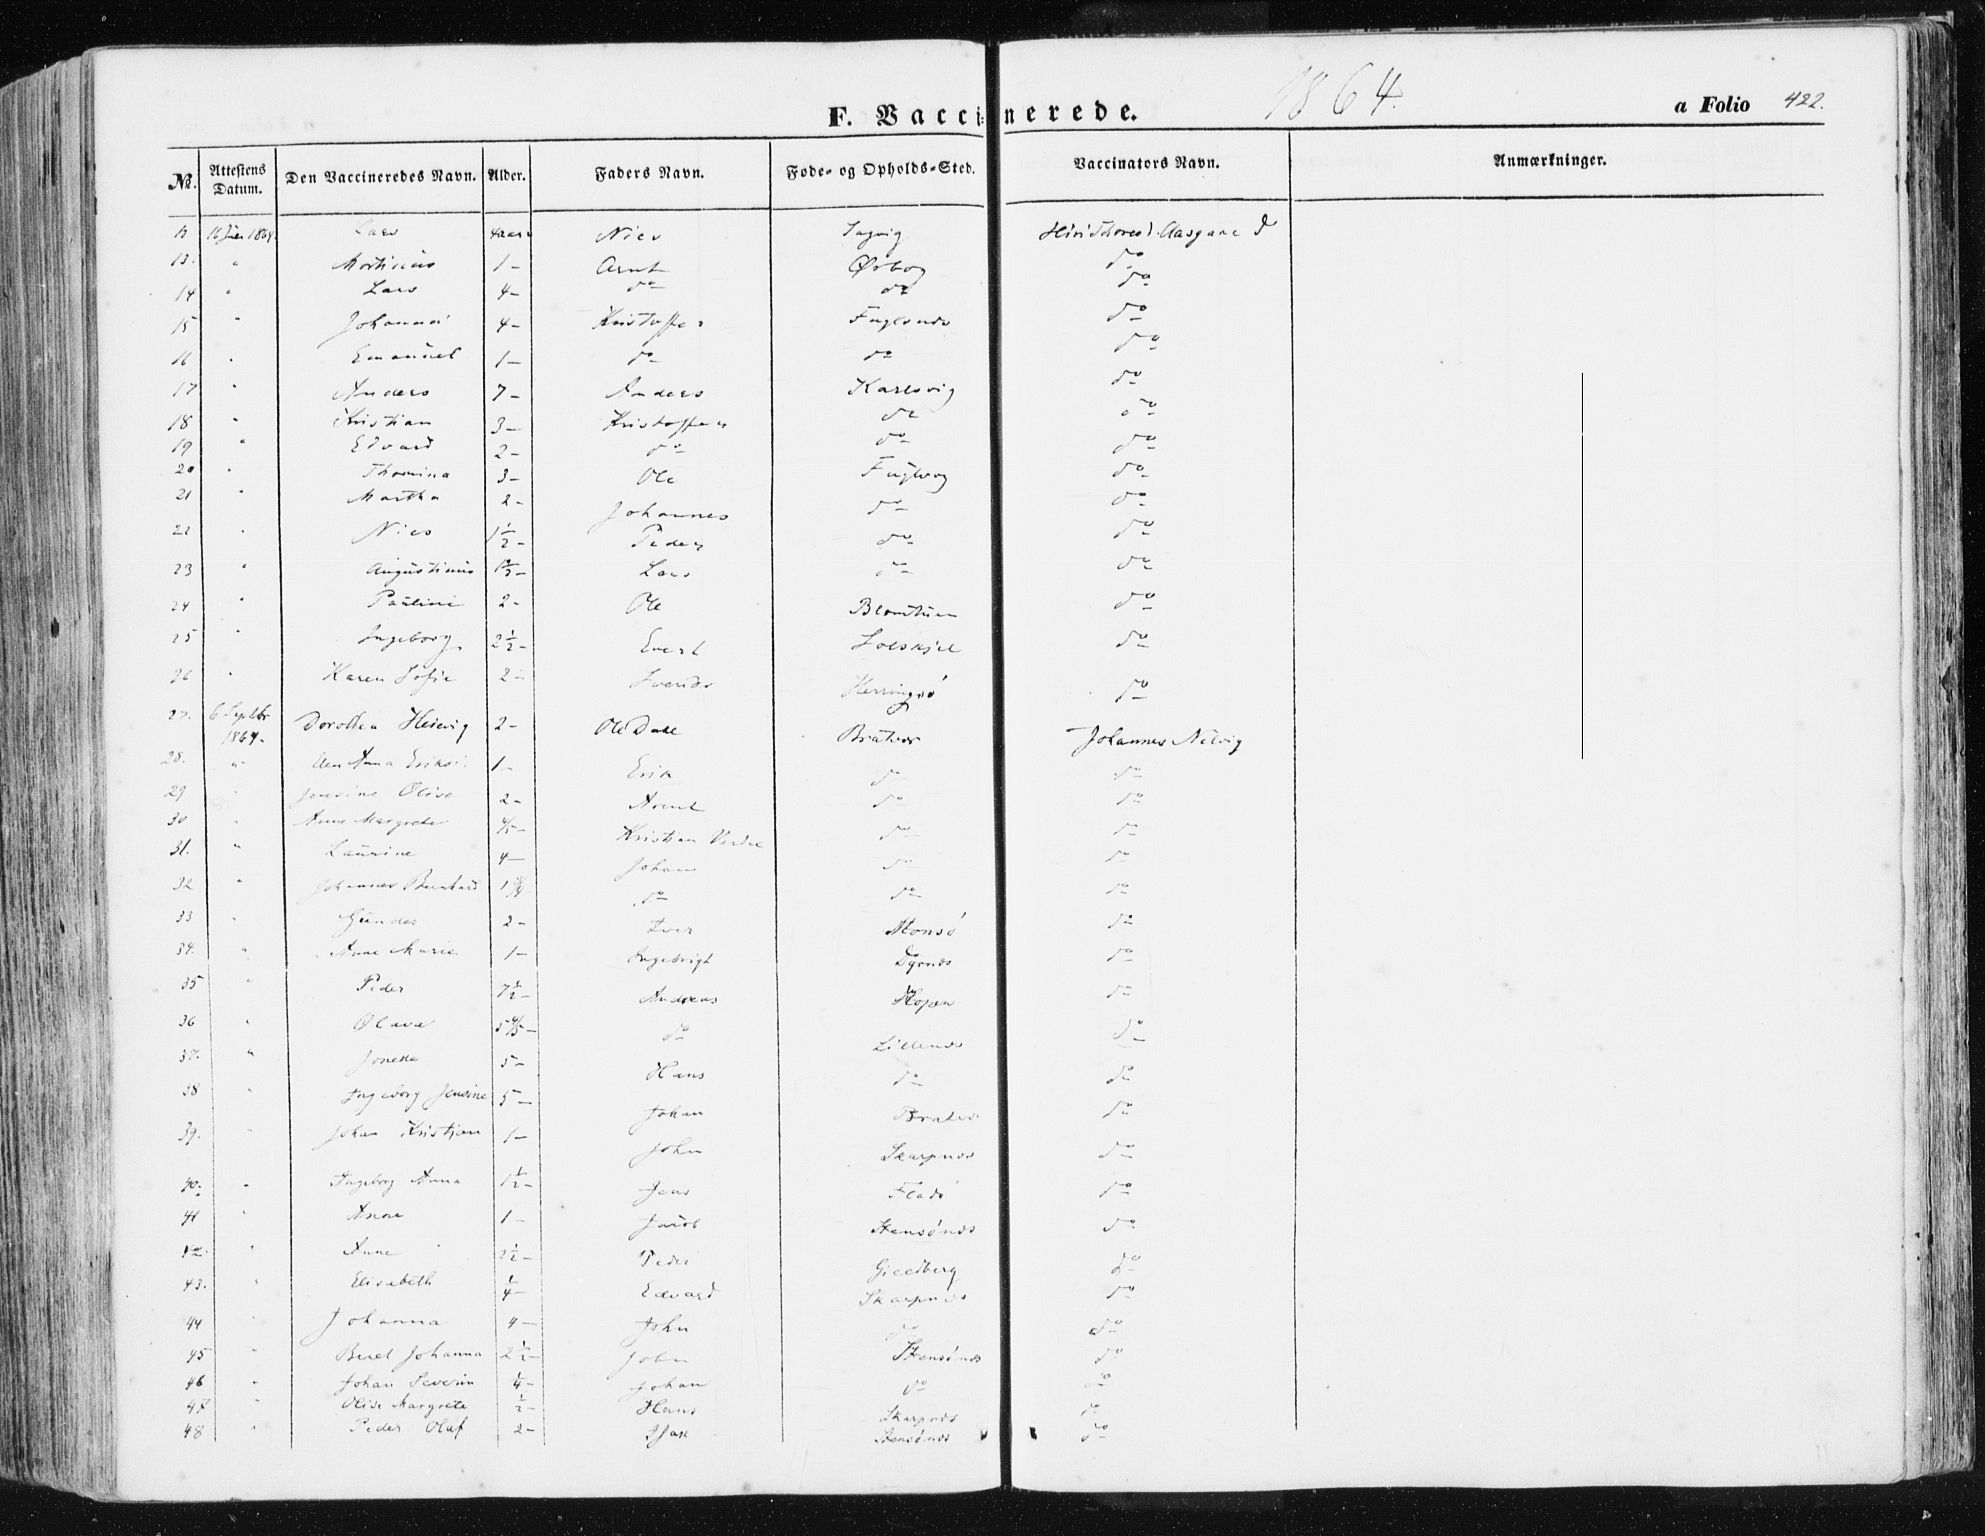 F. Vaccinerede. 1864. a Folio 422.
No. Attestens Datum. Den Vaccineredes Navn. Alder. Faders Navn. Føde- og Opholds-Sted. Vaccinators Navn. Anmærkninger.
12 16 1864 Lars 4 aar Nils Aasgaard
13. " Mortinus 1 – Arnt Ørbog do
14 " Lars 4 – do do do
15 " Johanna 4 – Kristoffer Fuglsnæs do
16 " Emanuel 1 – do do do
17 " Anders 7 – Anders Karlsvig do
18 " Kristian 3 – Kristoffer do do
19 " Edvard 2 – do do do
20 " Thomina 3 – Ole Fuglvog do
21 " Martha 2 – Johannes do do
22 " Nils 1½ – Peder do do
23 " Augustinus Lars do do
24 " Pauline 2 – Ole Blomtuen do
25 " Ingeborg 2½ – Evert do
26 " Karen Sofie 2 – Herringsø do
27. 6 Septbr 1864. Dorothea Heisvig 2 – Ole Dale Bratvær Johannes Nelvig
28. " Anna Eriks 1 – Erik do do
29 " Jensine Olise 2 – Arent do do
30 " Anne Margrete 4/5 – Kristian do do
31. " Laurine 4 – Johan do do
32 " Johannes Bernhard 1¾ do do do
33 " Gundes 2 – Iver do
34. " Anne Marie 1 – Ingebrigt do
35 " Peder 7½ – Andreas Hopen do
36 " Olava 5 4/5 – do Lillenæs do
37. " Jonetta 5 – Hans do do
38 " Ingeborg Jensine 5 – Johan Bratvær do
39. " Johan Kristian 1 – John Skarpnæs do
40. " Ingeborg Anna 1½ – Jens Fladø do
41 " Anne 1 – Jacob Stensønæs do
42. " Anne 2½ – Peder Gieelberg do
43. " Elisabeth ¼ – Edvard Skarpnæs do
44 " Johanna 4 – John do do
45 " Beret Johanna 2½ – John Stensønæs do
46 " Johan Severin ¼ – Johan do do
47 " Olise Margrete ½ – Hans Skarpnæs do
48 " Peder Olaf 2 – Isak Stensønæs do